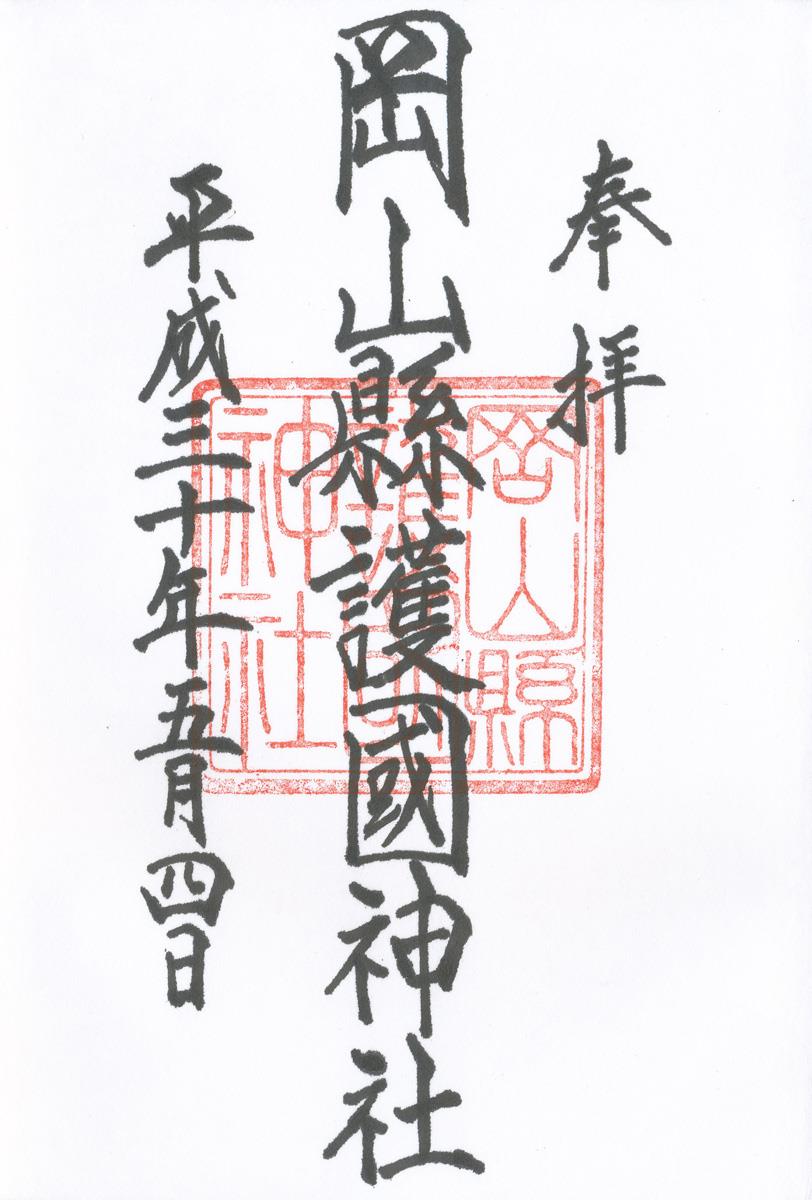 奉拝
岡山縣護國神社
平成三十年五月四日
岡山縣
護國
神社